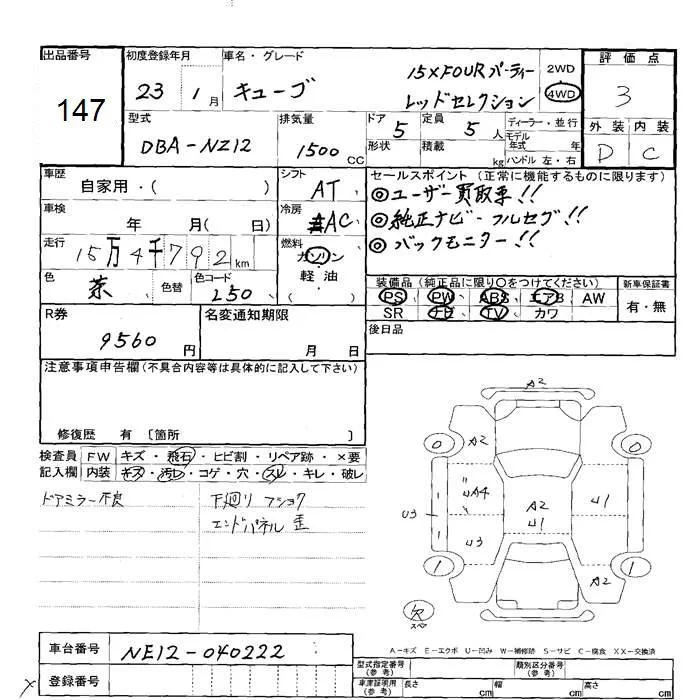 出品番号
147
初度登録年月
23 1月
車名・グレード
キューブ 15XFOURパーティー
レッドセレクション
2WD
4WD
評価点
3
型式
DBA-NZ12
排気量
1500 CC
ドア 5
定員 5 人
形状
積載 kg
ディーラー・並行
モデル年式 年
ハンドル 左・右
外装 内装
D C
車歴
自家用・( )
シフト
AT
セールスポイント (正常に機能するものに限ります)
◎ユーザー買取車!!
◎純正ナビ・フルセグ!!
◎バックモニター!!
車検
年 月( 日)
冷房
AC
走行
15万4千792km
燃料
ガソリン
軽油
( )
色
茶
色替
色コード
250
装備品 (純正品に限り○をつけてください)
PS PW ABS エアB AW
SR ナビ TV カワ
新車保証書
有・無
R券
9560円
名変通知期限
月 日
後日品
注意事項申告欄(不具合内容等は具体的に記入して下さい)
修復歴 有 〔箇所 〕
検査員記入欄
FW キズ・飛石・ヒビ割・リペア跡・×要
内装 キズ・汚レ・コゲ・穴・スレ・キレ・破レ
ドアミラー不良
下廻りフショク
エンドパネル歪
A2
0
A2
0
UA4
U3
U3
A2
U1
U1
1
A2
1
欠
スペア
A-キズ E-エクボ U-凹み W-補修跡 S-サビ C-腐食 XX-交換済
車台番号
NE12-040222
登録番号
X
型式指定番号(参考)
類別区分番号(参考)
車庫証明用(参考)
長さ cm
幅 cm
高さ cm